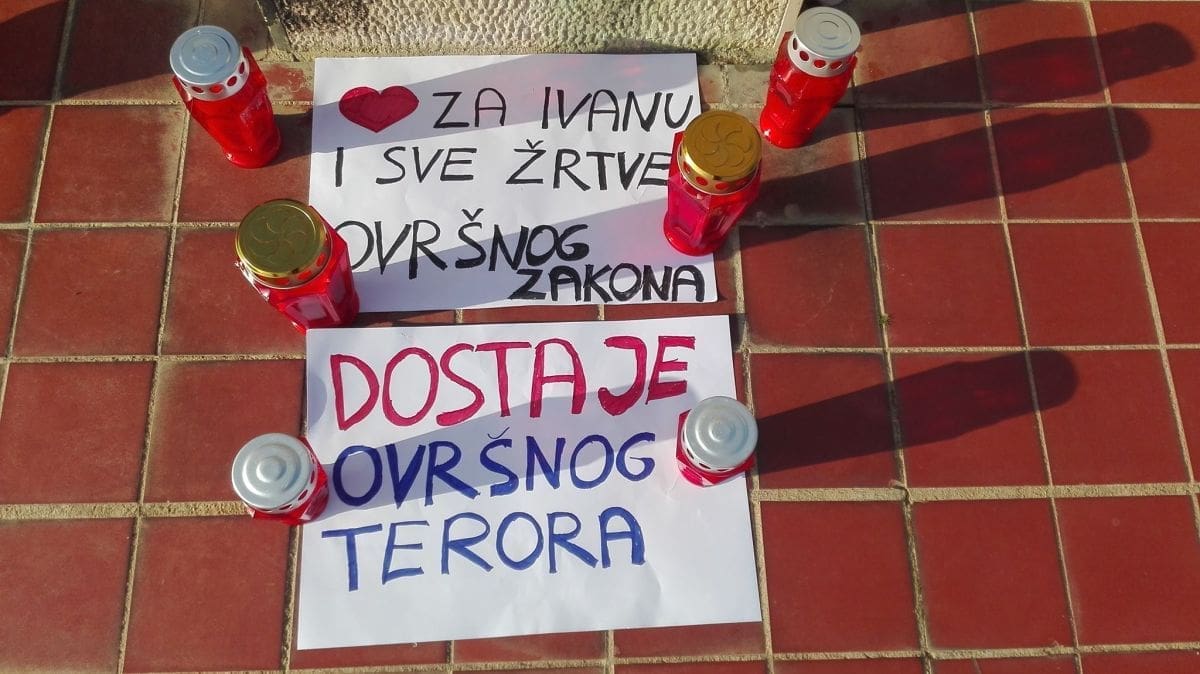 ZA IVANU
I SVE ŽRTVE
OVRŠNOG
ZAKONA
DOSTA JE
OVRŠNOG
TERORA